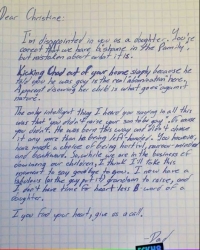 Dear Christine:
I'm disappointed in you as a daughter. You're
correct that we have a shame in the family,
but mistaken about what it is.
Kicking Chad out of your home simply because he
told you he was gay is the real abomination here.
A parent disowning her child is what goes against
nature.
The only intelligent thing I heard you saying in all this
was that "you didn't raise your son to be gay". Of course
you didn't. He was born this way and didn't choose
it any more than he being left-handed. You however,
have made a choice of being hurtful, narrow-minded
and backward. So, while we are in the business of
disowning our children, I think I'll take this
moment to say goodbye to you. I now have a
fabulous (as the gays put it) grandson to raise, and
I don't have time for heart-less B-word of a
daughter.
If you find your heart, give us a call.
Dad